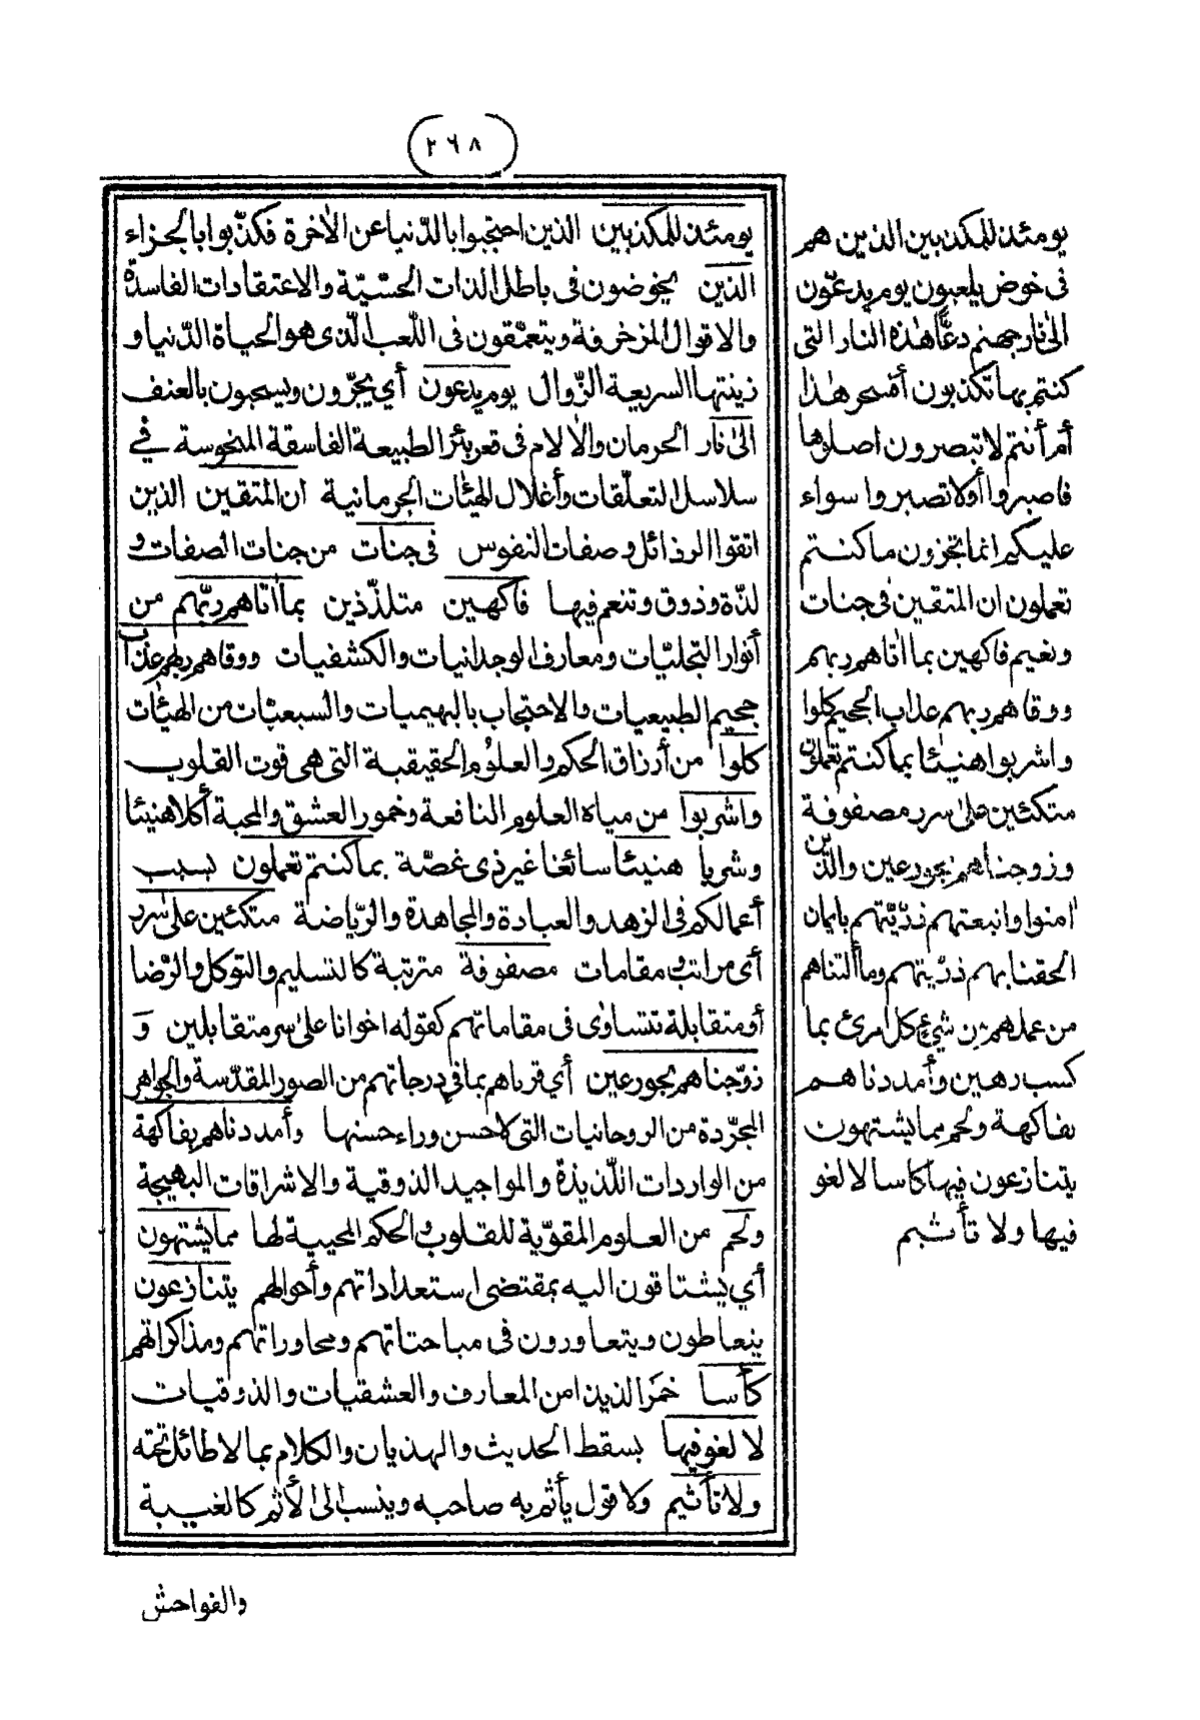 (٢٦٨)
يومئذ للمكذبين الذين هم
في خوض يلعبون يوم يدعّون
الى نار جهنم دعًّا هذه النار التى
كنتم بها تكذبون أفسحر هذا
أم أنتم لا تبصرون اصلوها
فاصبروا أو لا تصبروا سواء
عليكم انما تجزون ما كنتم
تعملون ان المتقين فى جنات
ونعيم فاكهين بما اتاهم ربهم
ووقاهم ربهم عذاب الجحيم كلوا
واشربوا هنيئا بما كنتم تعملون
متكئين على سرر مصفوفة
وزوجناهم بحور عين والذين
امنوا واتبعتهم ذرّيّتهم بايمان
الحقنا بهم ذرّيتهم وما ألتناهم
من عملهم من شئ كل امرئ بما
كسب رهين وأمددناهم
بفاكهة ولحم مما يشتهون
يتنازعون فيها كاسا لا لغو
فيها ولا تأثيم
يومئذ للمكذبين الذين احتجبوا بالدّنيا عن الاخرة فكذّبوا بالجزاء
الذين يخوضون فى باطل الذات الحسّيّة والاعتقادات الفاسدة
والاقوال المزخرفة ويتعمّقون فى اللّعب الّذى هو الحياة الدّنيا و
زينتها السريعة الزّوال يوم يدعون أي يجرّون ويسحبون بالعنف
الى نار الحرمان والالام فى قعر بئر الطبيعة الفاسقة المنحوسة في
سلاسل التعلّقات وأغلال الهيئات الجرمانية ان المتقين الذين
اتقوا الرذائل وصفات النفوس فى جنات من جنات الصفات و
لذّة وذوق وتنعم فيها فاكهين متلذّذين بما اتاهم ربّهم من
أنوار التجليّات ومعارف الوجدانيات والكشفيات ووقاهم ربهم عذاب
جحيم الطبيعيات والاحتجاب بالبهيميات والسبعيّات من الهيئات
كلوا من أرزاق الحكم والعلوم الحقيقية التى هى قوت القلوب
واشربوا من مياه العلوم النافعة وخمور العشق والمحبة أكلا هنيئا
وشربا هنيئا سائغا غير ذى غصّة بما كنتم تعملون بسبب
أعمالكم فى الزهد والعبادة والمجاهدة والرّياضة متكئين على سرر
أى مراتب ومقامات مصفوفة مترتبة كالتسليم والتوكل والرّضا
أو متقابلة تتساوى فى مقاماتهم كقوله اخوانا على سرر متقابلين وَ
زوّجناهم بحور عين أي قرناهم بما في درجاتهم من الصور المقدّسة والجواهر
المجرّدة من الروحانيات التى لا حسن وراء حسنها وأمددناهم بفاكهة
من الواردات اللّذيذة والمواجيد الذوقية والاشراقات البهيجة
ولحم من العلوم المقوّية للقلوب والحكم المحيية لها مما يشتهون
أي يشتاقون اليه بمقتضى استعداداتهم وأحوالهم يتنازعون
يتعاطون ويتعاورون فى مباحثاتهم ومحاوراتهم ومذاكراتهم
كأسا خمرا لذيذا من المعارف والعشقيات والذوقيات
لا لغو فيها بسقط الحديث والهذيان والكلام بما لا طائل تحته
ولا تأثيم ولا قول يأثم به صاحبه وينسب الى الأثم كالغيبة
والفواحش